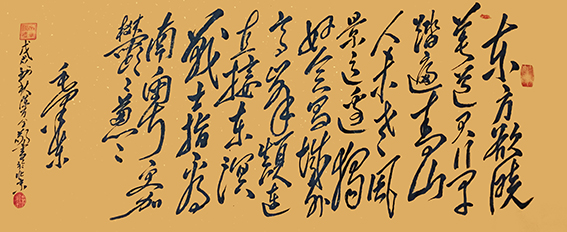 东方欲晓
莫道君行早
踏遍青山
人未老风
景这边独
好会昌城外
高峰颠连
直接东溟
战士指看
南粤更加
鬱々葱々
毛泽东
戊戌初秋